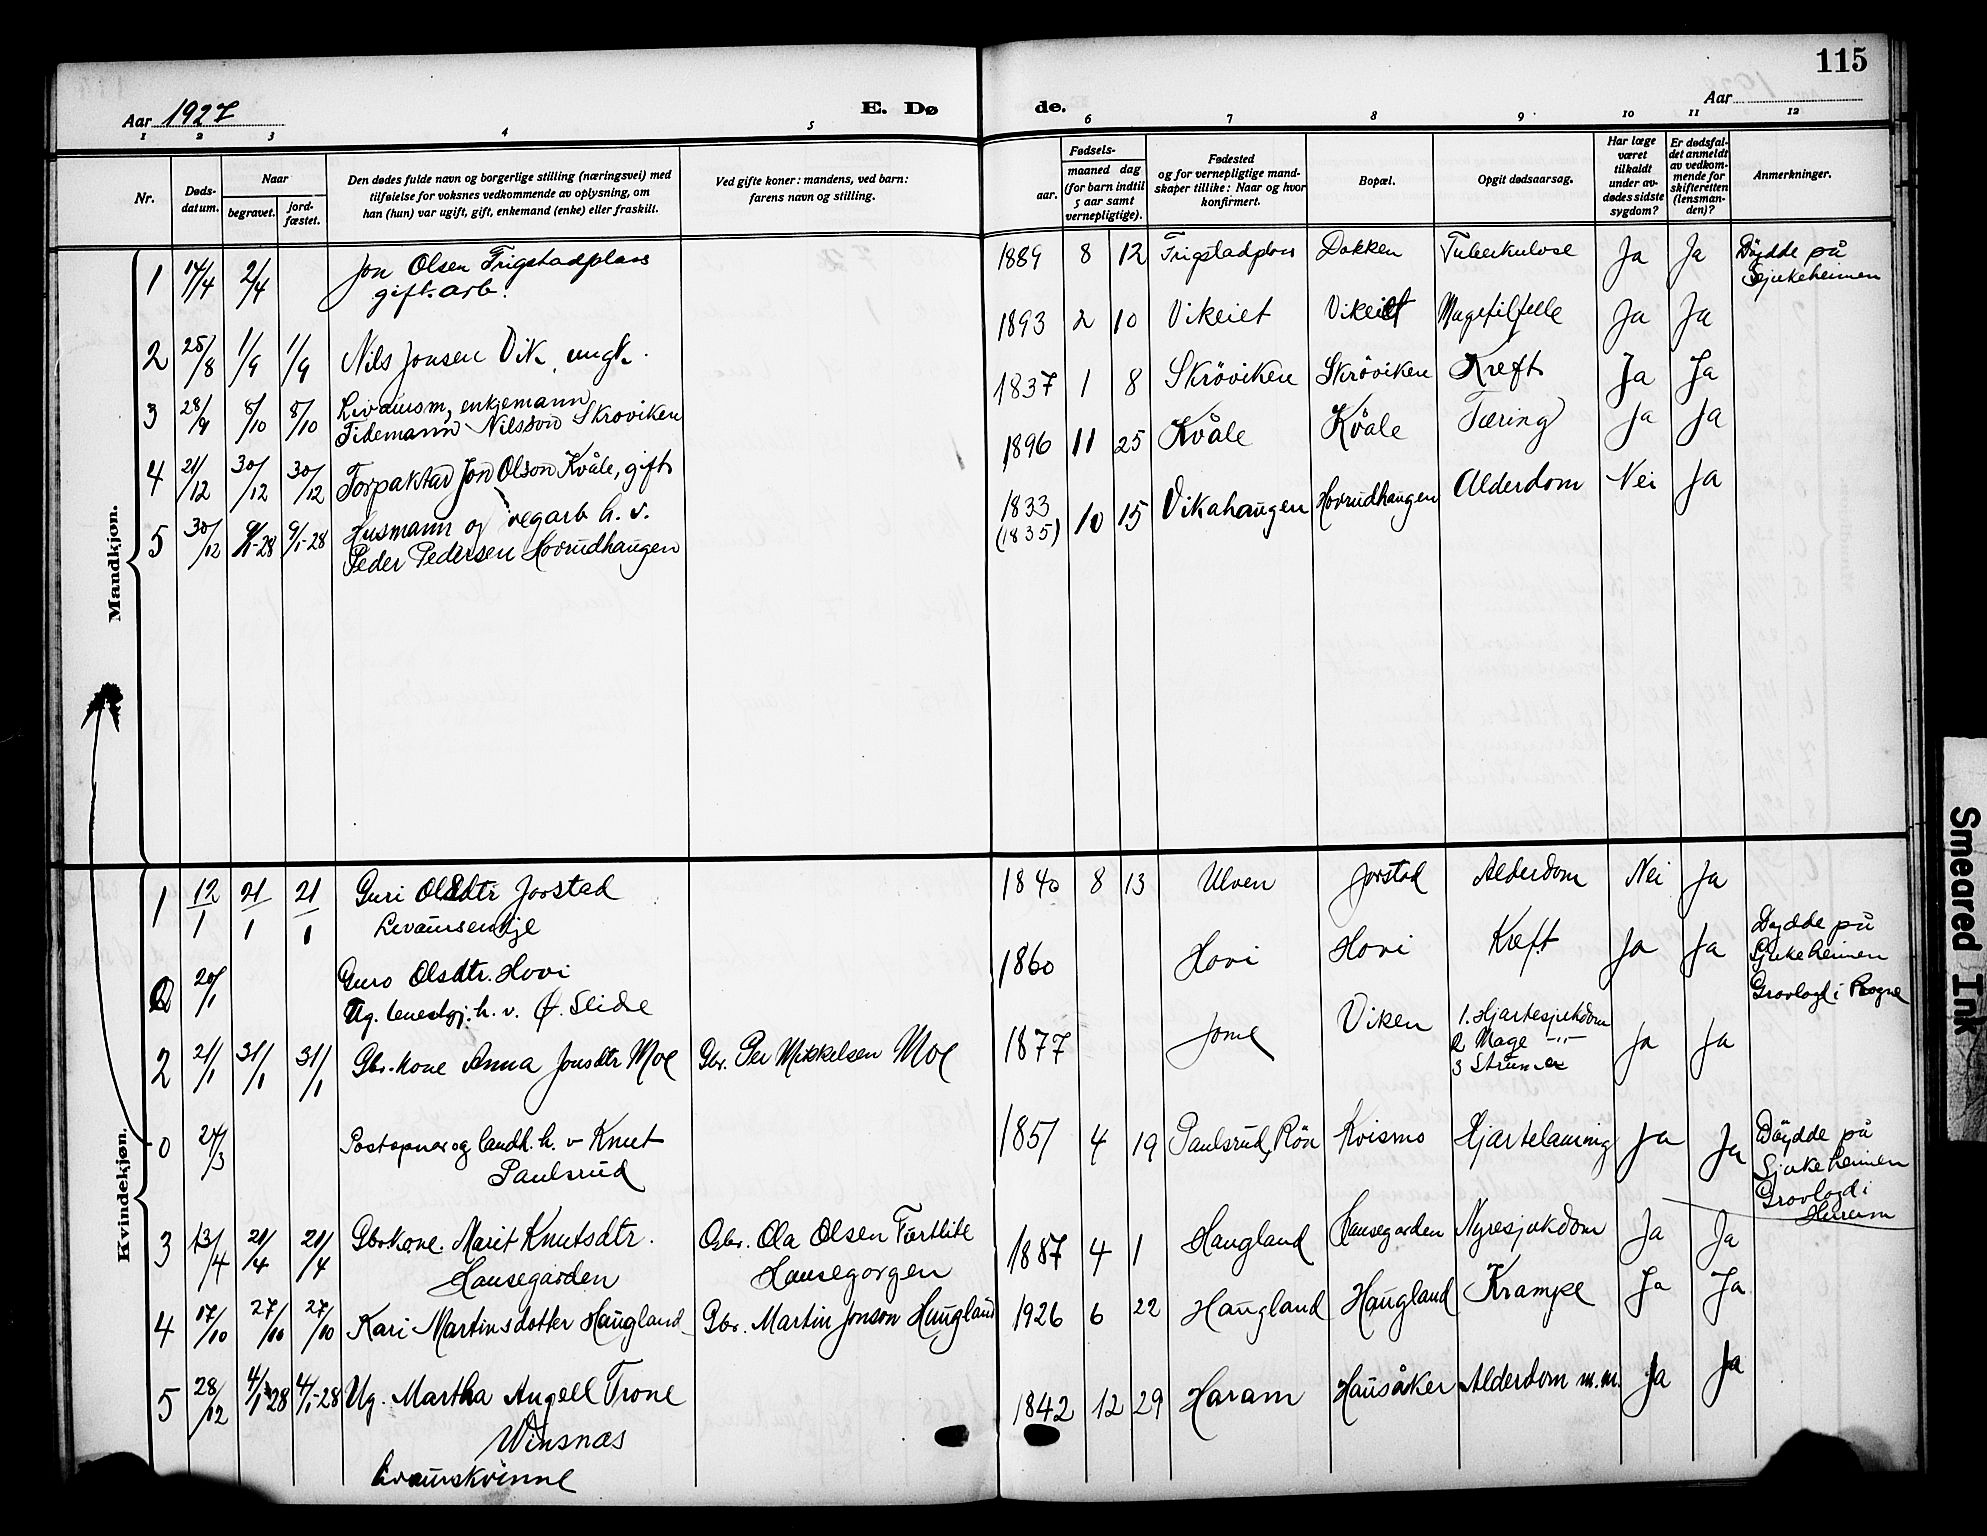 115
Aar 1927
E. Dø
de.
Aar
1 2 3 4 5 6 7 8 9 10 11 12
Nr.
Døds-
datum.
Naar
begravet.
jord-
fæstet.
Den dødes fulde navn og borgerlige stilling (næringsvei) med
tilføielse for voksnes vedkommende av oplysning, om
han (hun) var ugift, gift, enkemand (enke) eller fraskilt.
Ved gifte koner: mandens, ved barn:
farens navn og stilling.
Fødsels-
aar.
maaned dag
(for barn indtil
5 aar samt
vernepligtige).
Fødested
og for vernepligtige mand-
skaper tillike: Naar og hvor
konfirmert.
Bopæl.
Opgit dødsaarsag.
Har læge
været
tilkaldt
under av-
dødes sidste
sygdom?
Er dødsfal-
det anmeldt
av vedkom-
mende for
skifteretten
(lensman-
den)?
Anmerkninger.
Mandkjøn.
1 14/4 2/4 Jon Olsen Trigstadplass 1889 8 12 Trigstadplass Dokken Tuberkulose Ja Ja Döydde på
gift. arb. Sjukeheimen
2 25/8 1/9 1/9 Nils Jonsen Vik, ungk. 1893 2 10 Vikeiet Vikeiet Magetilfelle Ja Ja
3 28/9 8/10 8/10 Livaursm, enkjemann 1837 1 8 Skröviken Skröviken Kreft Ja Ja
Tidemann Nilsson Skroviken
4 21/12 30/12 30/12 Forpaktar Jon Olson Kvåle, gift 1896 11 25 Kvåle Kvåle Tæring Ja Ja
5 30/12 9/1-28 9/1-28 Husmann og vegarb h. v. 1833 10 15 Vikahaugen Hovrudhaugen Alderdom Nei Ja
Peder Pedersen Hovrudhaugen (1835)
Kvindekjøn.
1 12/1 21/1 21/1 Guri Olsdtr Jorstad 1840 8 13 Ulven Jorstad Alderdom Nei Ja
Livaursenkje
0 20/1 Guro Olsdtr. Hovi 1860 Hovi Hovi Kreft Ja Ja Døydde på
Ug. tenestgj. h. v. Ø. Slidre Sjukeheimen
Gravlagd i Rogne
2 21/1 31/1 31/1 Gbr.kone Anna Jonsdtr Moe Gbr. Per Mikkelsen Moe 1877 Jome Viken 1. Hjartesjukdom Ja Ja
2 Mage -"-
3 Struma
0 24/3 Postopnar og landh. h. v Knut 1851 4 19 Paulsrud, Rön Kvismo Hjartelaming Ja Ja Döydde på
Paulsrud Sjukeheimen
Gravlagd i
3 13/4 21/4 21/4 Gbrkone. Marit Knutsdtr. Gbr. Ola OlsenFørtlite 1887 4 1 Haugland Hausegarden Nyresjukdom Ja Ja
Hausegarden Hausegorgen
4 17/10 27/10 27/10 Kari Martinsdotter Haugland Gbr. Martin Jonson Haugland 1926 6 22 Haugland Haugland Krampe Ja Ja
5 28/12 4/1-28 4/1-28 Ug. Martha Angell Trone 1842 12 29 Haram Hausåker Alderdom m.m. Ja Ja
Winsnæs
Livaurskvinne
Smeared Ink